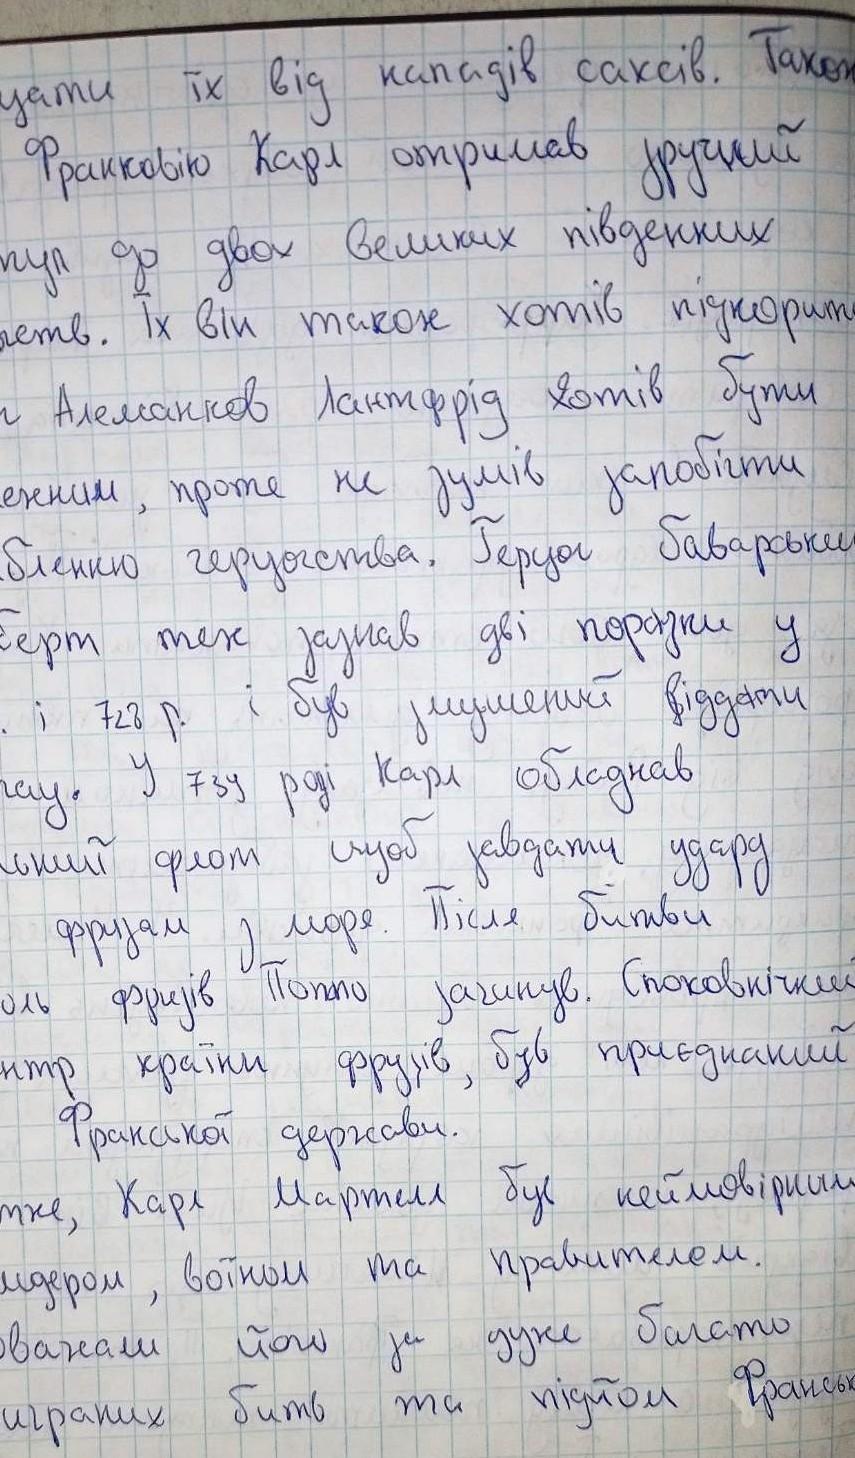 цати їх від нападів саксів. Також
Франковію Карл отримав зручний
туп до двох великих південних
цтв. Їх він також хотів підкорити
г Алеманнов Лантфрід хотів бути
ежним, проте не зумів запобігти
абленню герцогства. Герцог баварський
берт теж зазнав дві поразки у
. і 728 р. і був змушений віддати
гау. У 734 році Карл обладнав
льний флот щоб завдати удару
фризам з моря. Після битви
оль фризів Поппо загинув. Споковнічний
нтр країни фризів, був приєднаний
Франської держави.
тже, Карл Мартелл був неймовірним
идером, воїном та правителем.
оважали його за дуже багато
играних битв та підйом Франськ